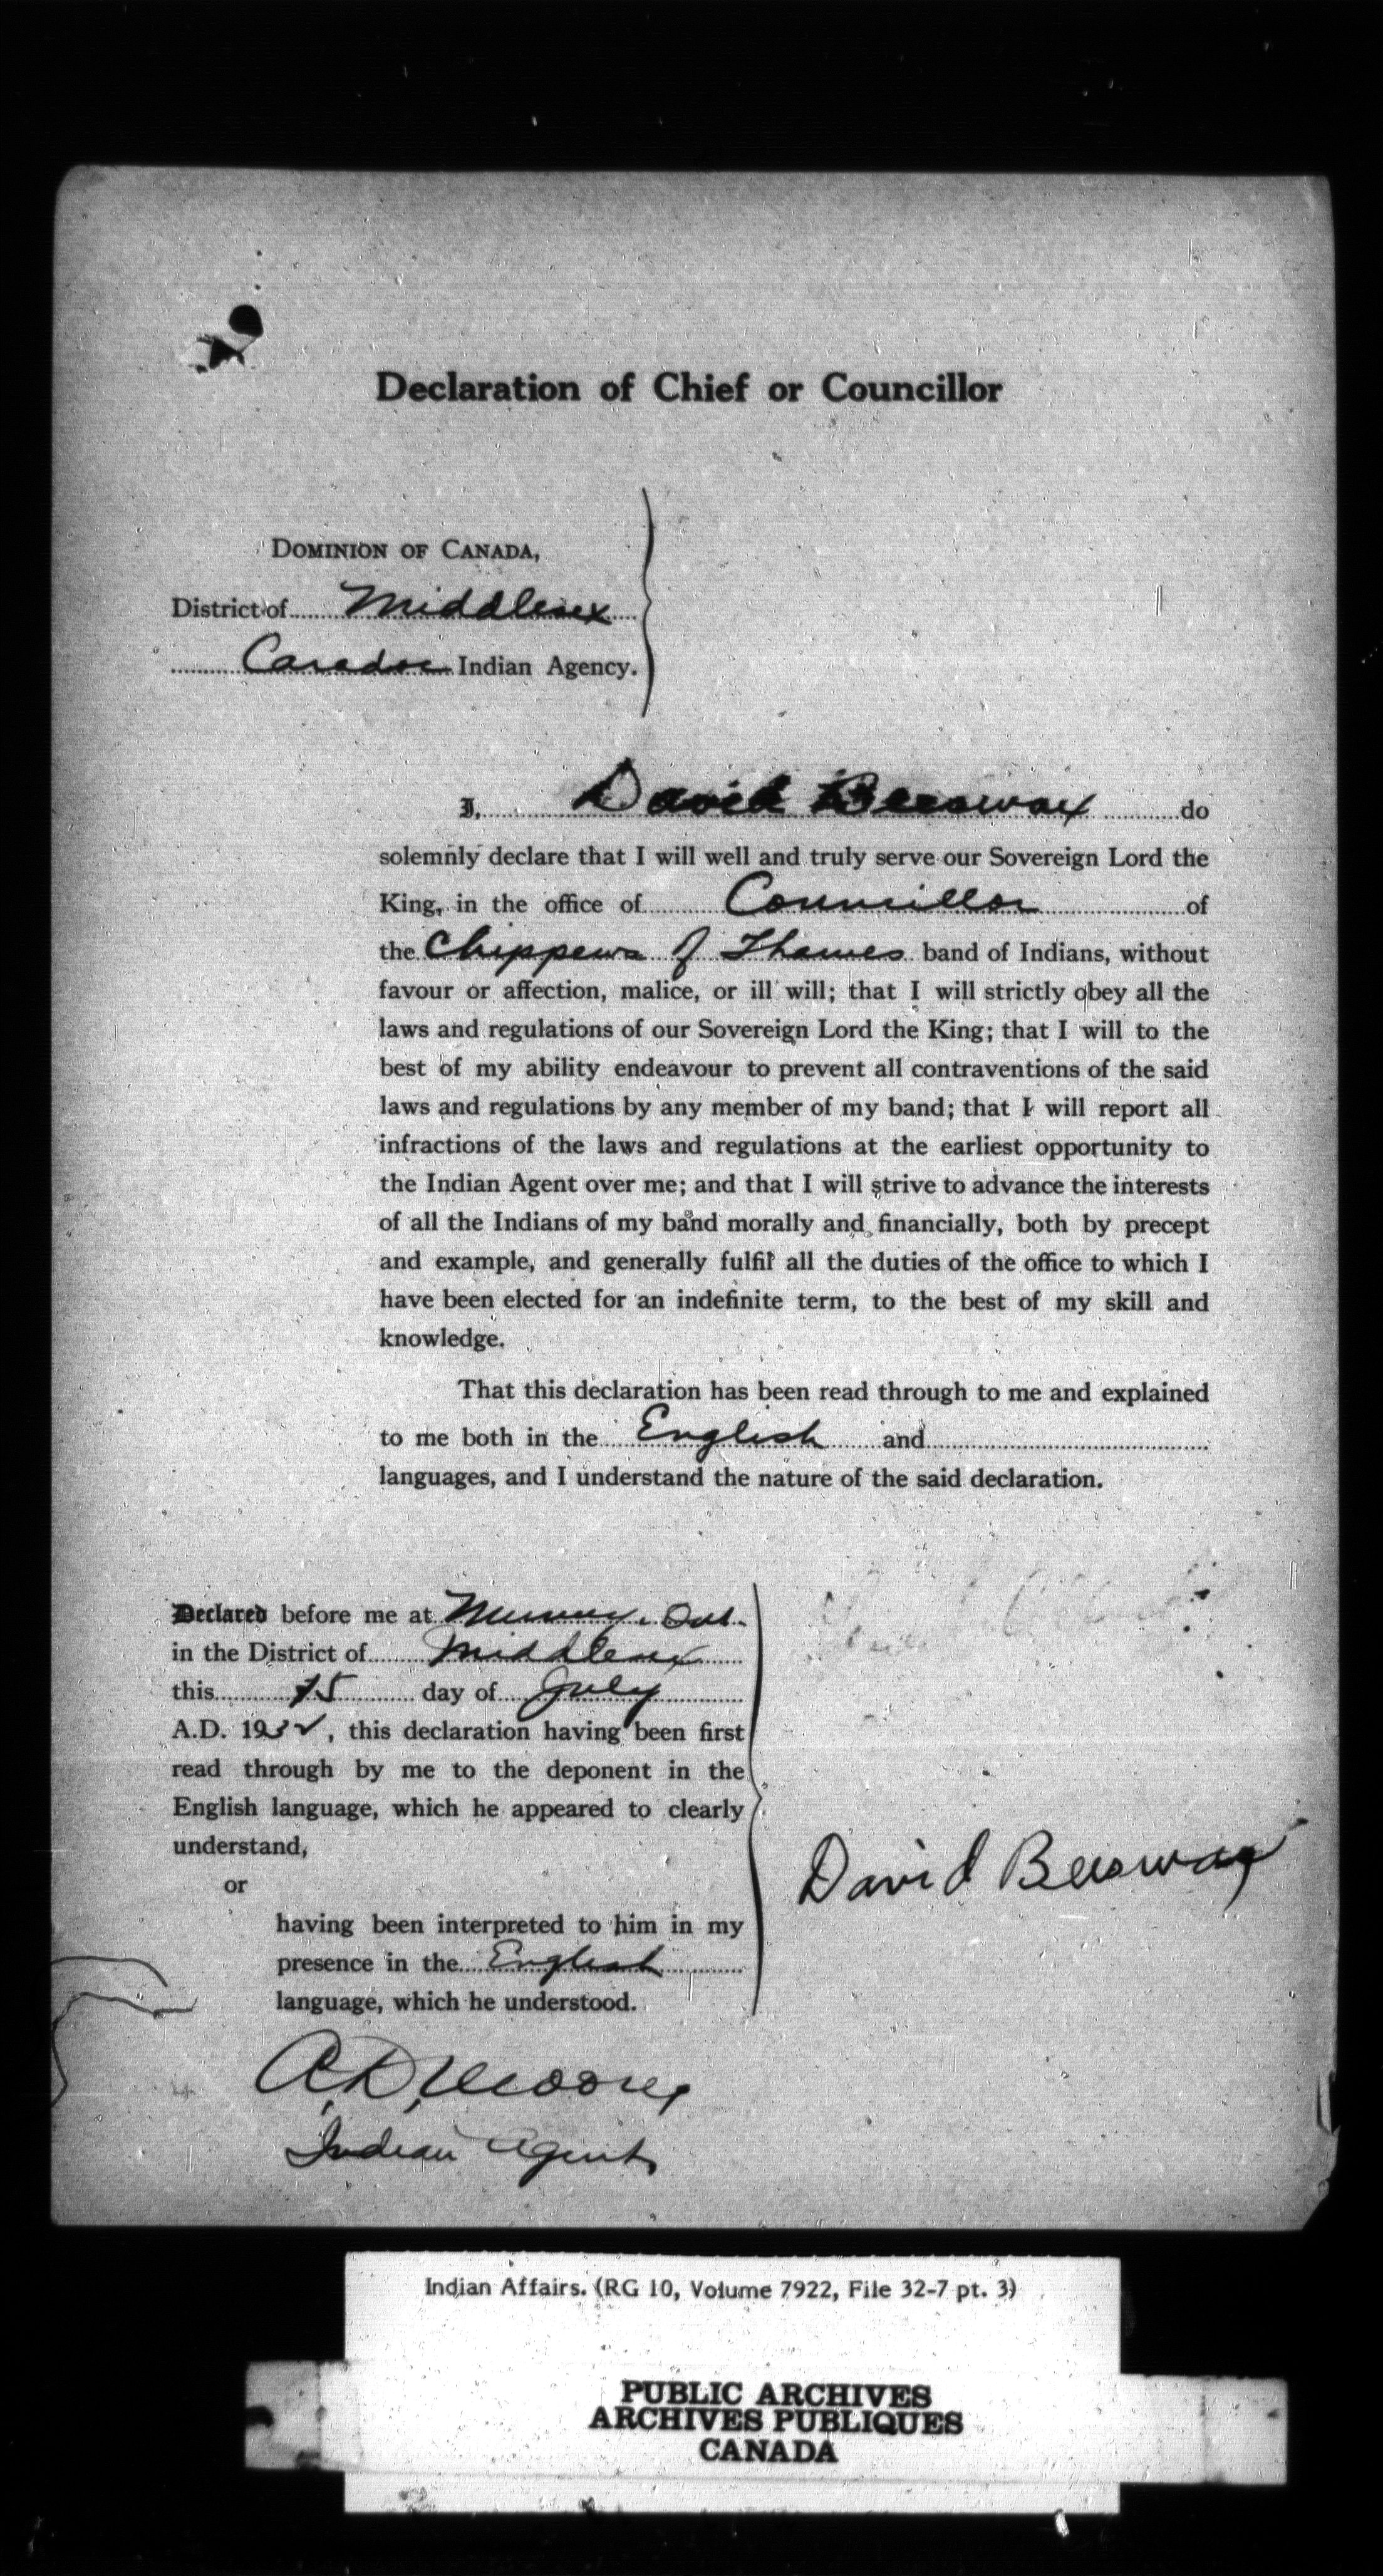 Declaration of Chief or Councillor
DOMINION OF CANADA,
District of Middlesex
Caradoc Indian Agency.
I, David Beeswax do
solemnly declare that I will well and truly serve our Sovereign Lord the
King, in the office of Councillor of
the Chippewa of Thames band of Indians, without
favour or affection, malice, or ill will; that I will strictly obey all the
laws and regulations of our Sovereign Lord the King; that I will to the
best of my ability endeavour to prevent all contraventions of the said
laws and regulations by any member of my band; that I will report all
infractions of the laws and regulations at the earliest opportunity to
the Indian Agent over me; and that I will strive to advance the interests
of all the Indians of my band morally and financially, both by precept
and example, and generally fulfil all the duties of the office to which I
have been elected for an indefinite term, to the best of my skill and
knowledge.
That this declaration has been read through to me and explained
to me both in the English and
languages, and I understand the nature of the said declaration.
Declared before me at Muncey, Ont.
in the District of Middlesex
this 15 day of July
A.D. 1932, this declaration having been first
read through by me to the deponent in the
English language, which he appeared to clearly
understand,
or
having been interpreted to him in my
presence in the English
language, which he understood.
David Beeswax
A.D. Moore
Indian Agent
Indian Affairs. (RG 10, Volume 7922, File 32-7 pt. 3)
PUBLIC ARCHIVES
ARCHIVES PUBLIQUES
CANADA